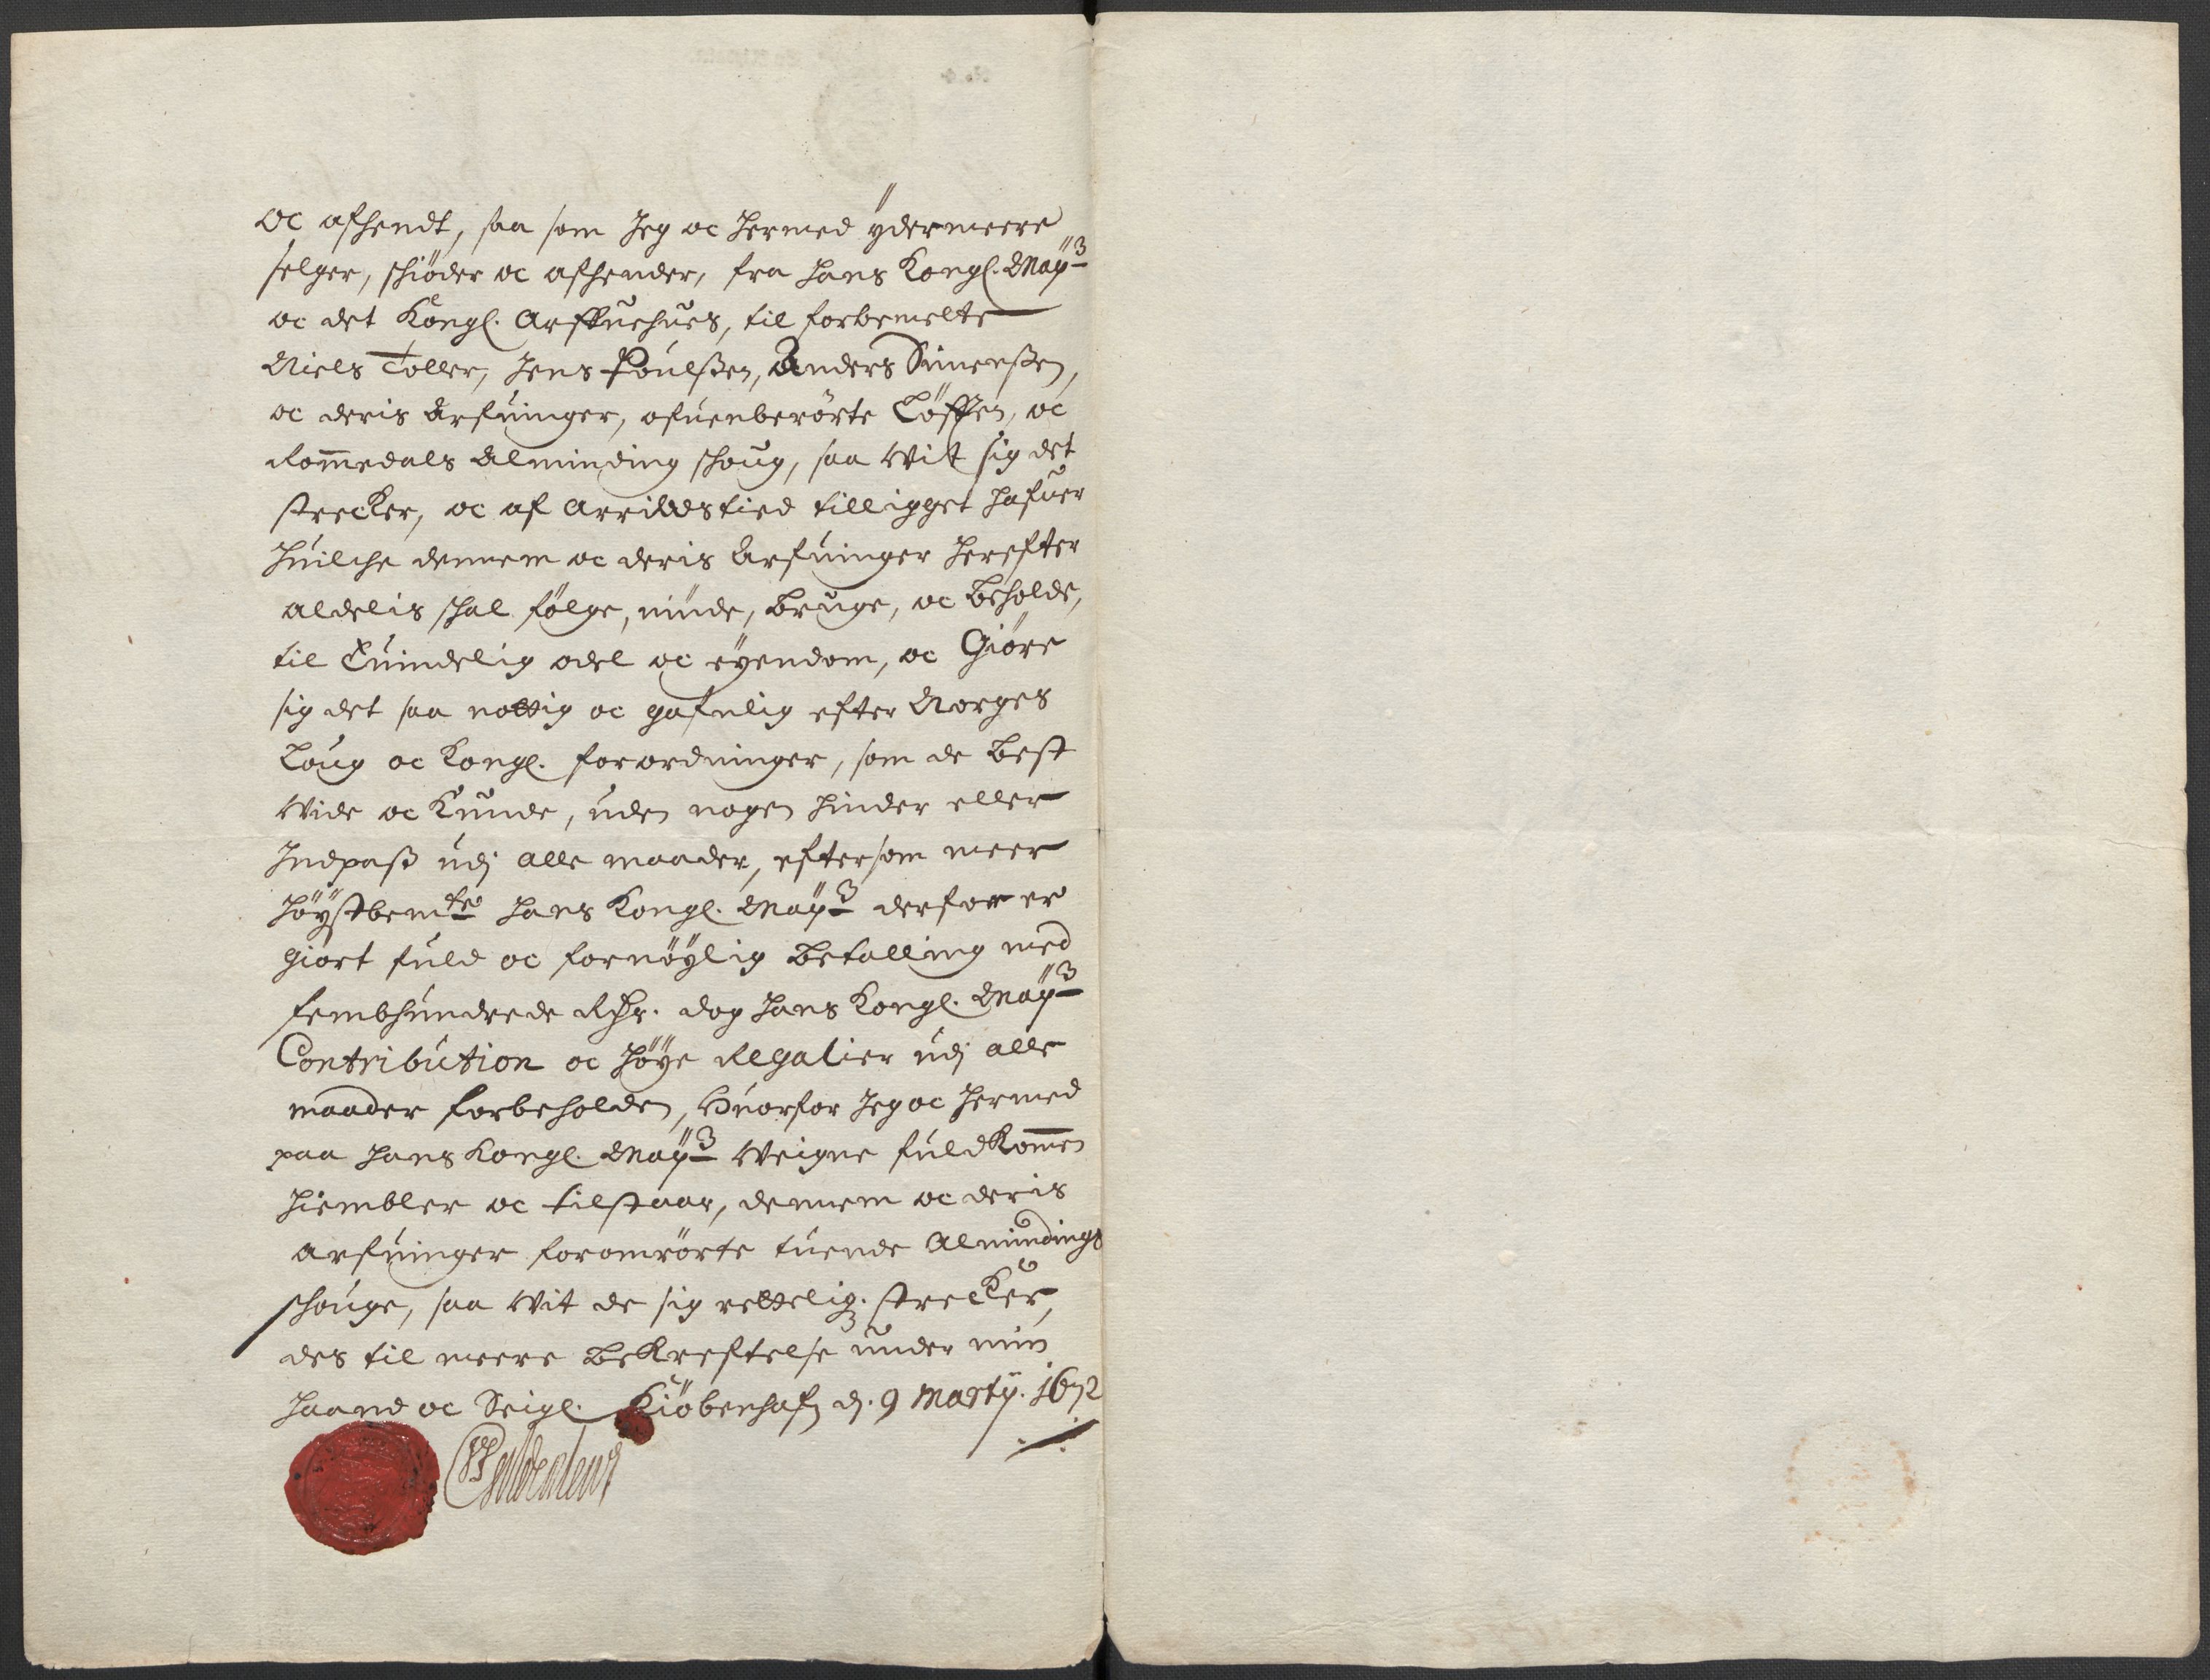 oc afhendt, saa som Jeg oc hermed ÿdermeere
selger, schiöder oc afhender, fra Hans Kongl. Maÿ:
oc det Kongl. Arffuehues, til forbemelte
Niels Toller, Jens Poulßen, Anders Simenßen,
oc deris Arfuinger, ofuenberörte Löffen, oc
Rommedals Alminding schoug, saa wit sig det
strecker, oc af arrilds tied tilligget hafuer
huilche dennem oc deris Arfuinger herefter
aldelis schal fölge, niude, bruge, oc beholde,
til Euindelig odel oc eÿendom, oc Giöre
sig det saa nottig oc gafnlig efter Norges
Loug oc Kongl. forordninger, som de best
wide oc kunde, uden nogen hinder eller
Indpaß udj alle maader, eftersom meer
höÿstbemte Hans Kongl. Maÿ: derfor er
giort fuld oc fornöÿlig betalling med
fembhundrede Rdr. dog Hans Kongl. Maÿ:
Contribution oc höÿe Regalier udj alle
maader forbeholden, Huorfor Jeg oc hermed
paa Hans Kongl. Maÿ: weigne fuldkommen
hiembler oc tilstaar, dennem oc deris
arfuinger foromrörte tuende Almindings
schouge, saa wit de sig rettelig: strecker,
des til meere bekreftelse under min
haand oc Seigl. Kiöbenhafn d. 9 Martÿ. 1672